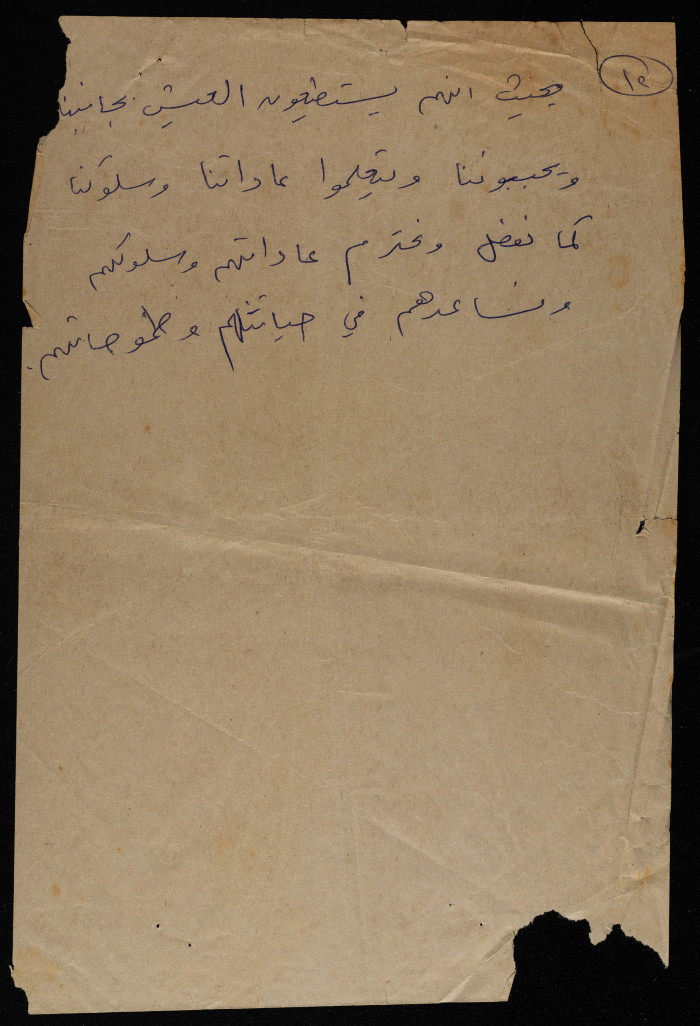 ١٥
بحيث انهم يستطيعون العيش بجانبنا
ويحبوننا ويتعلموا عاداتنا وسلوكنا
كما نفضل ونحترم عاداتهم وسلوكهم
ونساعدهم في حياتهم وطموحاتهم.